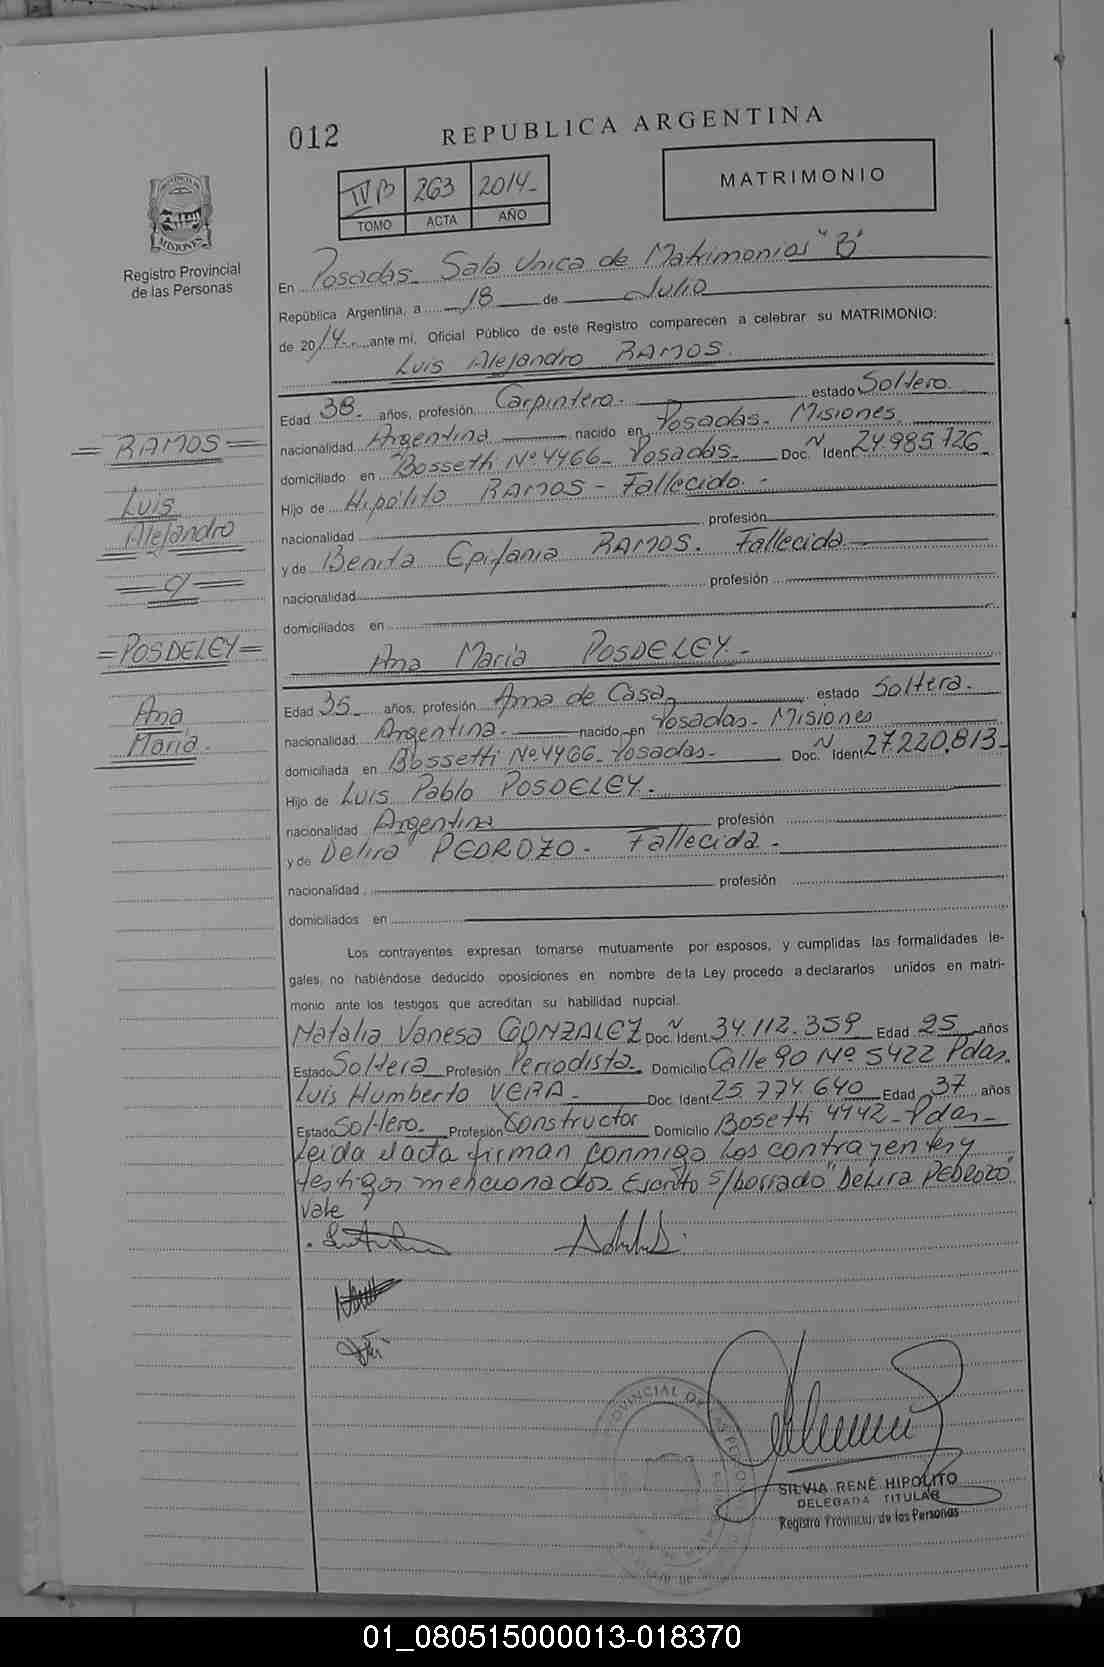 012
REPUBLICA ARGENTINA
IVB 263 2014-
TOMO ACTA AÑO
MATRIMONIO
MISIONES
Registro Provincial
de las Personas
En Posadas Sala Unica de Matrimonios "B"
República Argentina, a 18 de Julio
de 2014 ante mí, Oficial Público de este Registro comparecen a celebrar su MATRIMONIO:
Luis Alejandro RAMOS.
Edad 38 años, profesión Carpintero. estado Soltero
nacionalidad Argentina nacido en Posadas. Misiones
domiciliado en Bossetti Nº 4466 Posadas Doc. N Ident 24.985.726
Hijo de Hipólito RAMOS - Fallecido.-
nacionalidad profesión
y de Benita Epifania RAMOS. Fallecida
nacionalidad profesión
domiciliados en
Ana Maria POSDELEY.-
Edad 35 años, profesión Ama de Casa estado Soltera.
nacionalidad Argentina. nacido en Posadas. Misiones
domiciliada en Bossetti Nº 4466 Posadas- Doc. N Ident 27.220.813
Hijo de Luis Pablo POSDELEY.
nacionalidad Argentina profesión
y de Delira PEDROZO. Fallecida.
nacionalidad profesión
domiciliados en
Los contrayentes expresan tomarse mutuamente por esposos, y cumplidas las formalidades le-
gales, no habiéndose deducido oposiciones en nombre de la Ley procedo a declararlos unidos en matri-
monio ante los testigos que acreditan su habilidad nupcial.
Natalia Vanesa GONZALEZ Doc. N Ident. 34.112.359 Edad 25 años
Estado Soltera Profesión Periodista. Domicilio Calle 90 Nº 5422 Pdas.
Luis Humberto VERA Doc. Ident 25.774.640 Edad 37 años
Estado Soltero. Profesión Constructor Domicilio Bosetti 4442-Pdas-
Leida el acta firman conmigo los contrayentes y
testigos mencionados. Escrito s/borrado "Delira PEDROZO"
vale
= RAMOS =
Luis
Alejandro
= y =
= POSDELEY =
Ana
Maria.
SILVIA RENÉ HIPOLITO
DELEGADA TITULAR
Registro Provincial de las Personas
01_080515000013-018370